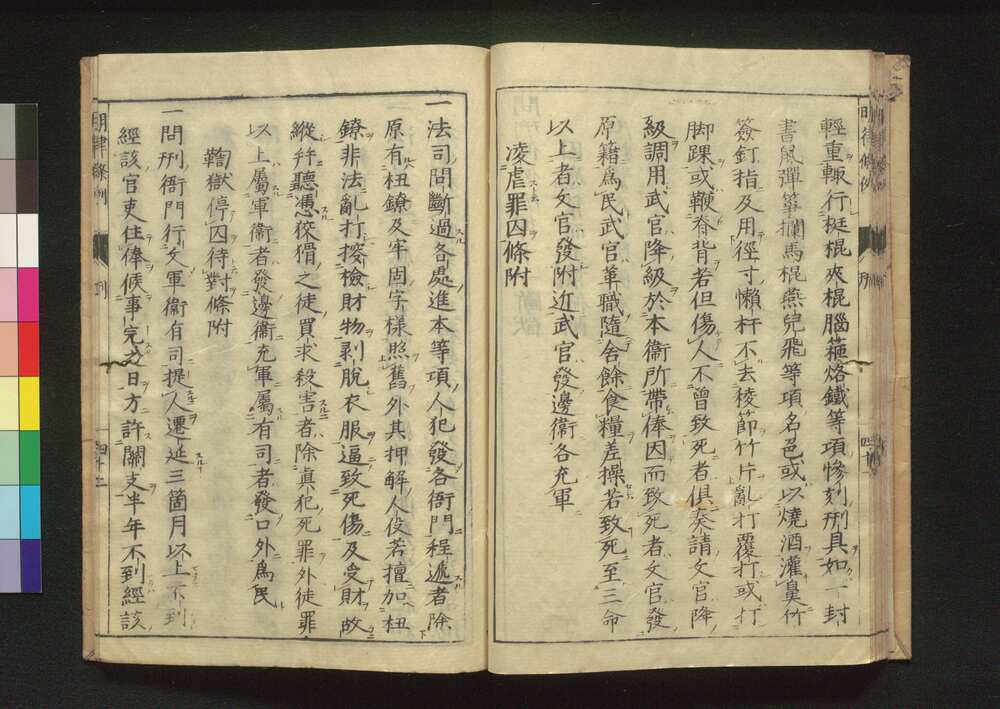 輕重輙行梃棍夾棍腦箍烙鐵等項慘刻刑具如一封
書鼠彈箏攔馬棍燕兒飛等項名色或以燒酒灌鼻竹
簽釘指及用徑寸懶杆不去稜節竹片亂打覆打或打
脚踝或鞭脊背若但傷人不曾致死者俱奏請文官降
級調用武官降級於本衞所帶俸因而致死者文官發
原籍爲民武官革職隨舍餘食糧差操若致死至三命
以上者文官發附近武官發邊衞各充軍
凌虐罪囚條附
一法司問斷過各處進本等項人犯發各衙門程遞者除
原有杻鐐及牢固字樣照舊外其押解人役若擅加杻
鐐非法亂打搜檢財物剥脫衣服逼致死傷及受財故
縱幷聽憑狡猾之徒買求殺害者除眞犯死罪外徒罪
以上屬軍衞者發邊衞充軍屬有司者發口外爲民
鞫獄停囚待對條附
一問刑衙門行文軍衞有司提人遷延三箇月以上不到
經該官吏住俸候事完之日方許關支半年不到經該
明律條例